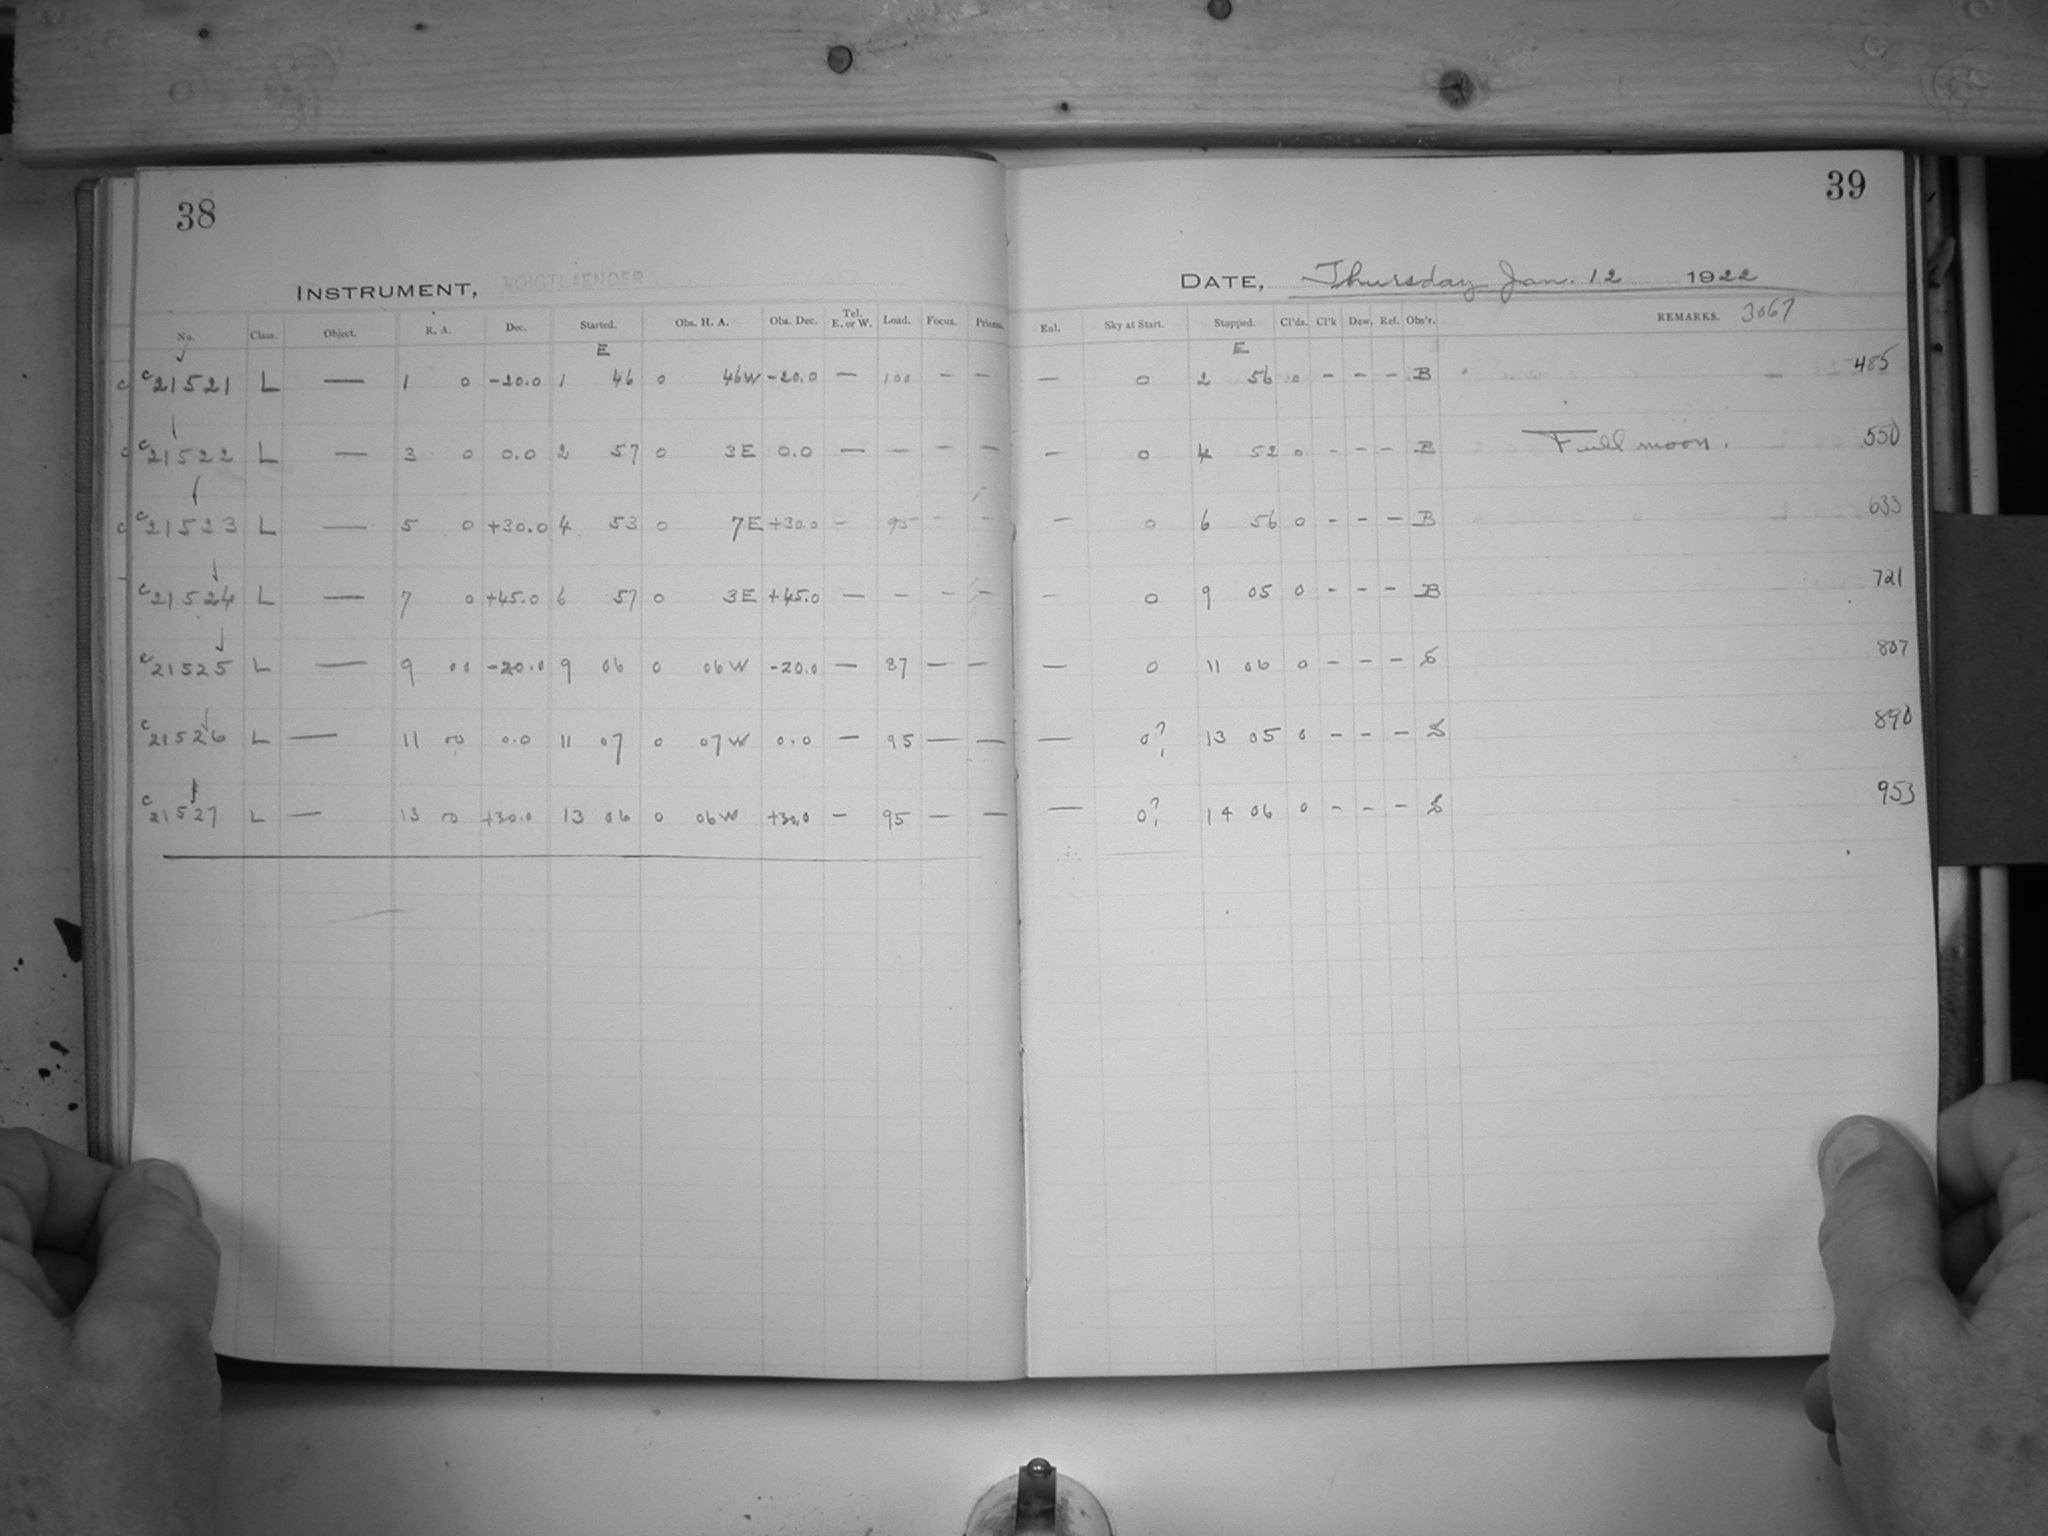 38
INSTRUMENT, VOIGTLAENDER
No. Class. Object. R. A. Dec. Started. Obs. H. A. Obs. Dec. Tel. E. or W. Load. Focus. Prisms.
E
c 21521 L — 1 0 -20.0 1 46 0 46W -20.0 — 100 — —
c 21522 L — 3 0 0.0 2 57 0 3E 0.0 — — — —
c 21523 L — 5 0 +30.0 4 53 0 7E +30.0 - 95 - -
c 21524 L — 7 0 +45.0 6 57 0 3E +45.0 — - - -
c 21525 L — 9 00 -20.0 9 06 0 06W -20.0 — 87 — —
c 21526 L — 11 00 0.0 11 07 0 07W 0.0 — 95 — —
c 21527 L — 13 00 +30.0 13 06 0 06W +30.0 — 95 — —
39
DATE, Thursday Jan. 12 1922
Ent. Sky at Start. Stopped. Cl'ds. Cl'k Dew. Ref. Obs'r. REMARKS. 3067
E
— 0 2 56 0 - - - B 485
— 0 4 52 0 - - - B Full moon. 550
— 0 6 56 0 - - - B 633
- 0 9 05 0 - - - B 721
— 0 11 06 0 - - - S 807
— 0? 13 05 0 - - - S 890
— 0? 14 06 0 - - - S 953